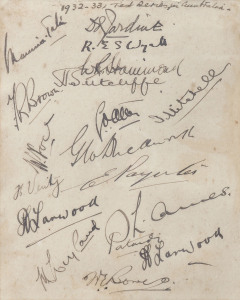 1932-33, Test Series in Australia.
Maurice Tate
D R Jardine
R. E. S. Wyatt
W R Hammond
F R Brown
H Sutcliffe
T Mitchell
G O Allen
W Voce
G Duckworth
H Verity
E Paynter
H Larwood
L. Ames.
M Leyland
Pataudi
H Larwood
W E Bowes